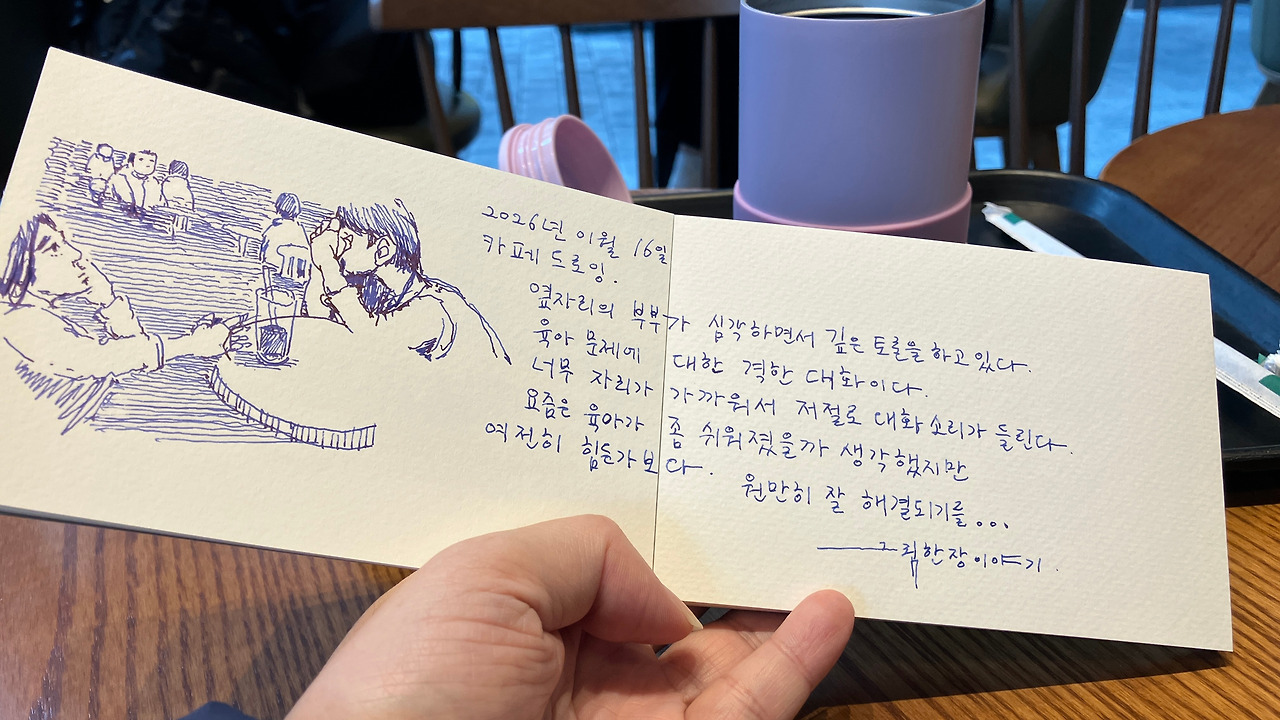 2026년 01월 16일
카페 드로잉.
옆자리의 부부가 심각하면서 깊은 토론을 하고 있다.
육아 문제에 대한 격한 대화이다.
너무 자리가 가까워서 저절로 대화 소리가 들린다.
요즘은 육아가 좀 쉬워졌을까 생각했지만
여전히 힘든가보다.
원만히 잘 해결되기를...
그림한장이야기.